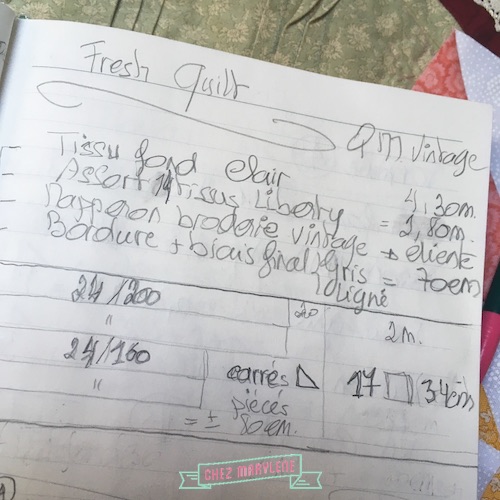 Fresh Quilt
QM vintage
- Tissu fond Clair 4,30m.
- Assort 14 tissus Liberty = 1,80m.
- Napperon broderie vintage + cliente
- Bordure + biais final) Gris = 70cm
ligné
24/200 20 2m.
"
24/160
carrés 17 34cm
"
piécés
= ± 80cm.
CHEZ MARYLENE